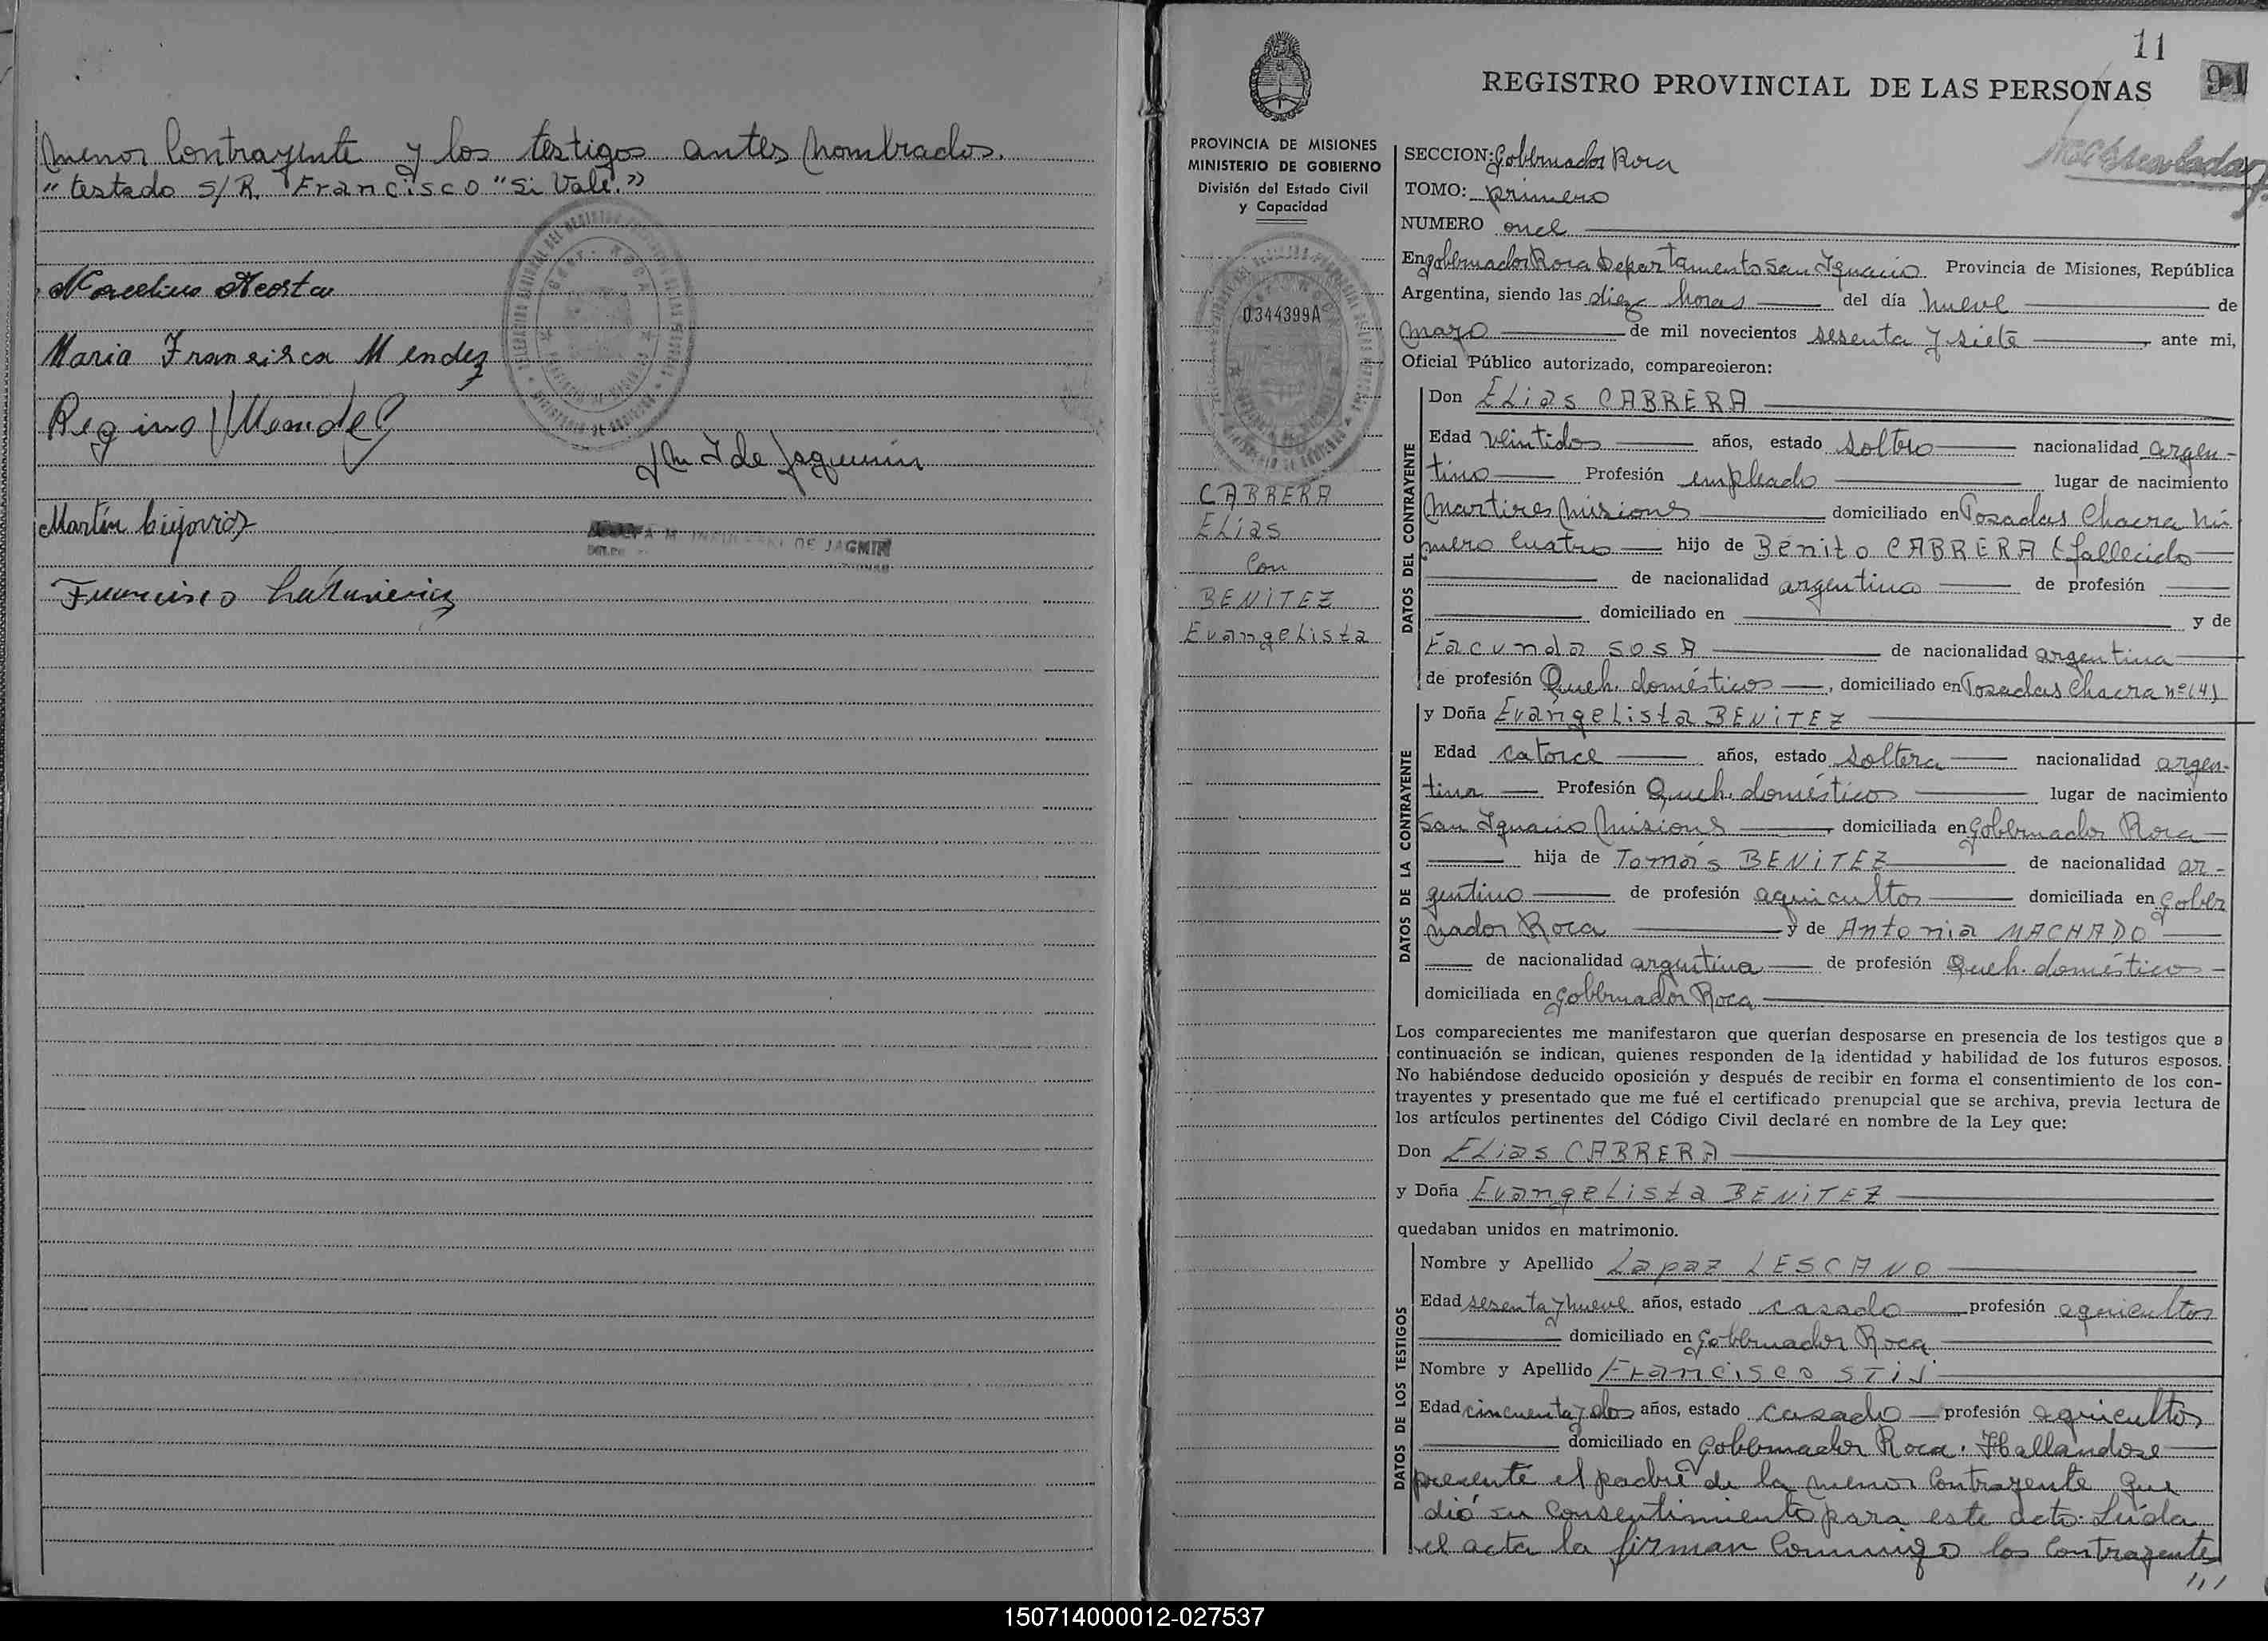 menor Contrayente y los testigos antes nombrados.
"testado S/R. Francisco "Si Vale."
Marcelino Acosta
Maria Fransisca Mendez
Regino Mendez
de Jagmin
Martin
Francisco
DE JAGMIN
11
91
REGISTRO PROVINCIAL DE LAS PERSONAS
PROVINCIA DE MISIONES
MINISTERIO DE GOBIERNO
División del Estado Civil
y Capacidad
0344399A
CABRERA
ELias
Con
BENITEZ
EvangeLista
SECCION: Gobernador Roca
TOMO: primero
NUMERO once
En gobernador Roca Departamento San Ignacio Provincia de Misiones, República
Argentina, siendo las diez horas del día nueve de
marzo de mil novecientos sesenta y siete ante mi,
Oficial Público autorizado, comparecieron:
DATOS DEL CONTRAYENTE
Don ELias CABRERA
Edad veintidos años, estado soltero nacionalidad argen-
tino Profesión empleado lugar de nacimiento
Martires Misiones domiciliado en Posadas Chacra Nú
mero Cuatro hijo de Benito CABRERA (fallecido
de nacionalidad argentino de profesión
domiciliado en y de
Facunda SOSA de nacionalidad argentina
de profesión Queh. domésticos, domiciliado en Posadas Chacra nº (4)
DATOS DE LA CONTRAYENTE
y Doña EvángeLista BENITEZ
Edad catorce años, estado soltera nacionalidad argen-
tina Profesión Queh. domésticos lugar de nacimiento
San Ignacio Misiones, domiciliada en Gobernador Roca
hija de Tomás BENITEZ de nacionalidad ar-
gentino de profesión agricultor domiciliada en Gober
nador Roca y de Antonia MACHADO
de nacionalidad argentina de profesión Queh. domésticos
domiciliada en Gobernador Roca
Los comparecientes me manifestaron que querían desposarse en presencia de los testigos que a
continuación se indican, quienes responden de la identidad y habilidad de los futuros esposos.
No habiéndose deducido oposición y después de recibir en forma el consentimiento de los con-
trayentes y presentado que me fué el certificado prenupcial que se archiva, previa lectura de
los artículos pertinentes del Código Civil declaré en nombre de la Ley que:
Don ELias CABRERA
y Doña EvangeLista BENITEZ
quedaban unidos en matrimonio.
DATOS DE LOS TESTIGOS
Nombre y Apellido Lapaz LESCANO
Edad sesenta y nueve años, estado casado profesión agricultor
domiciliado en Gobernador Roca
Nombre y Apellido Francisco STIJ
Edad cincuenta y dos años, estado casado profesión agricultor
domiciliado en Gobernador Roca. Hallandose
presente el padre de la menor Contrayente que
dió su Consentimiento para este acto. Leída
el acta la firman Conmigo los Contrayentes
///
150714000012-027537